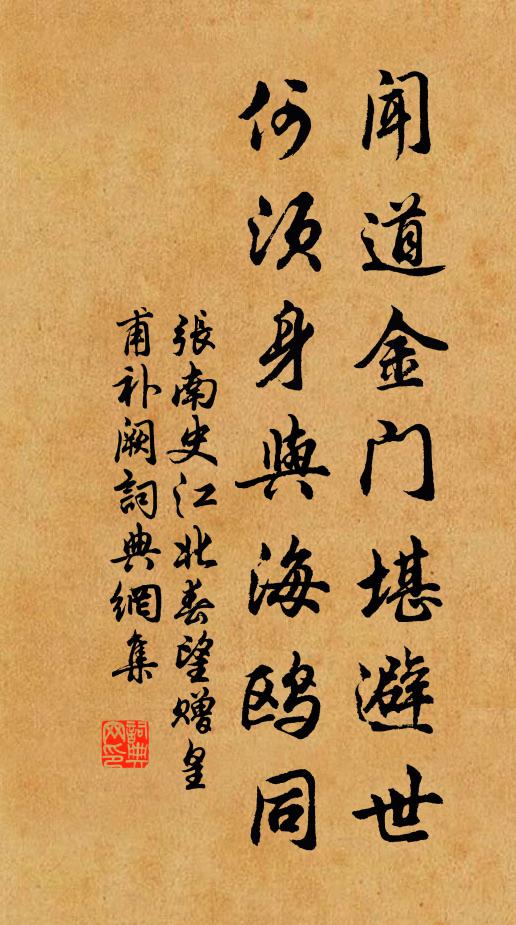 闻道金门堪避世
何须身与海鸥同
張南史江北春望赠皇
甫补阙詞典網集
詞典網印